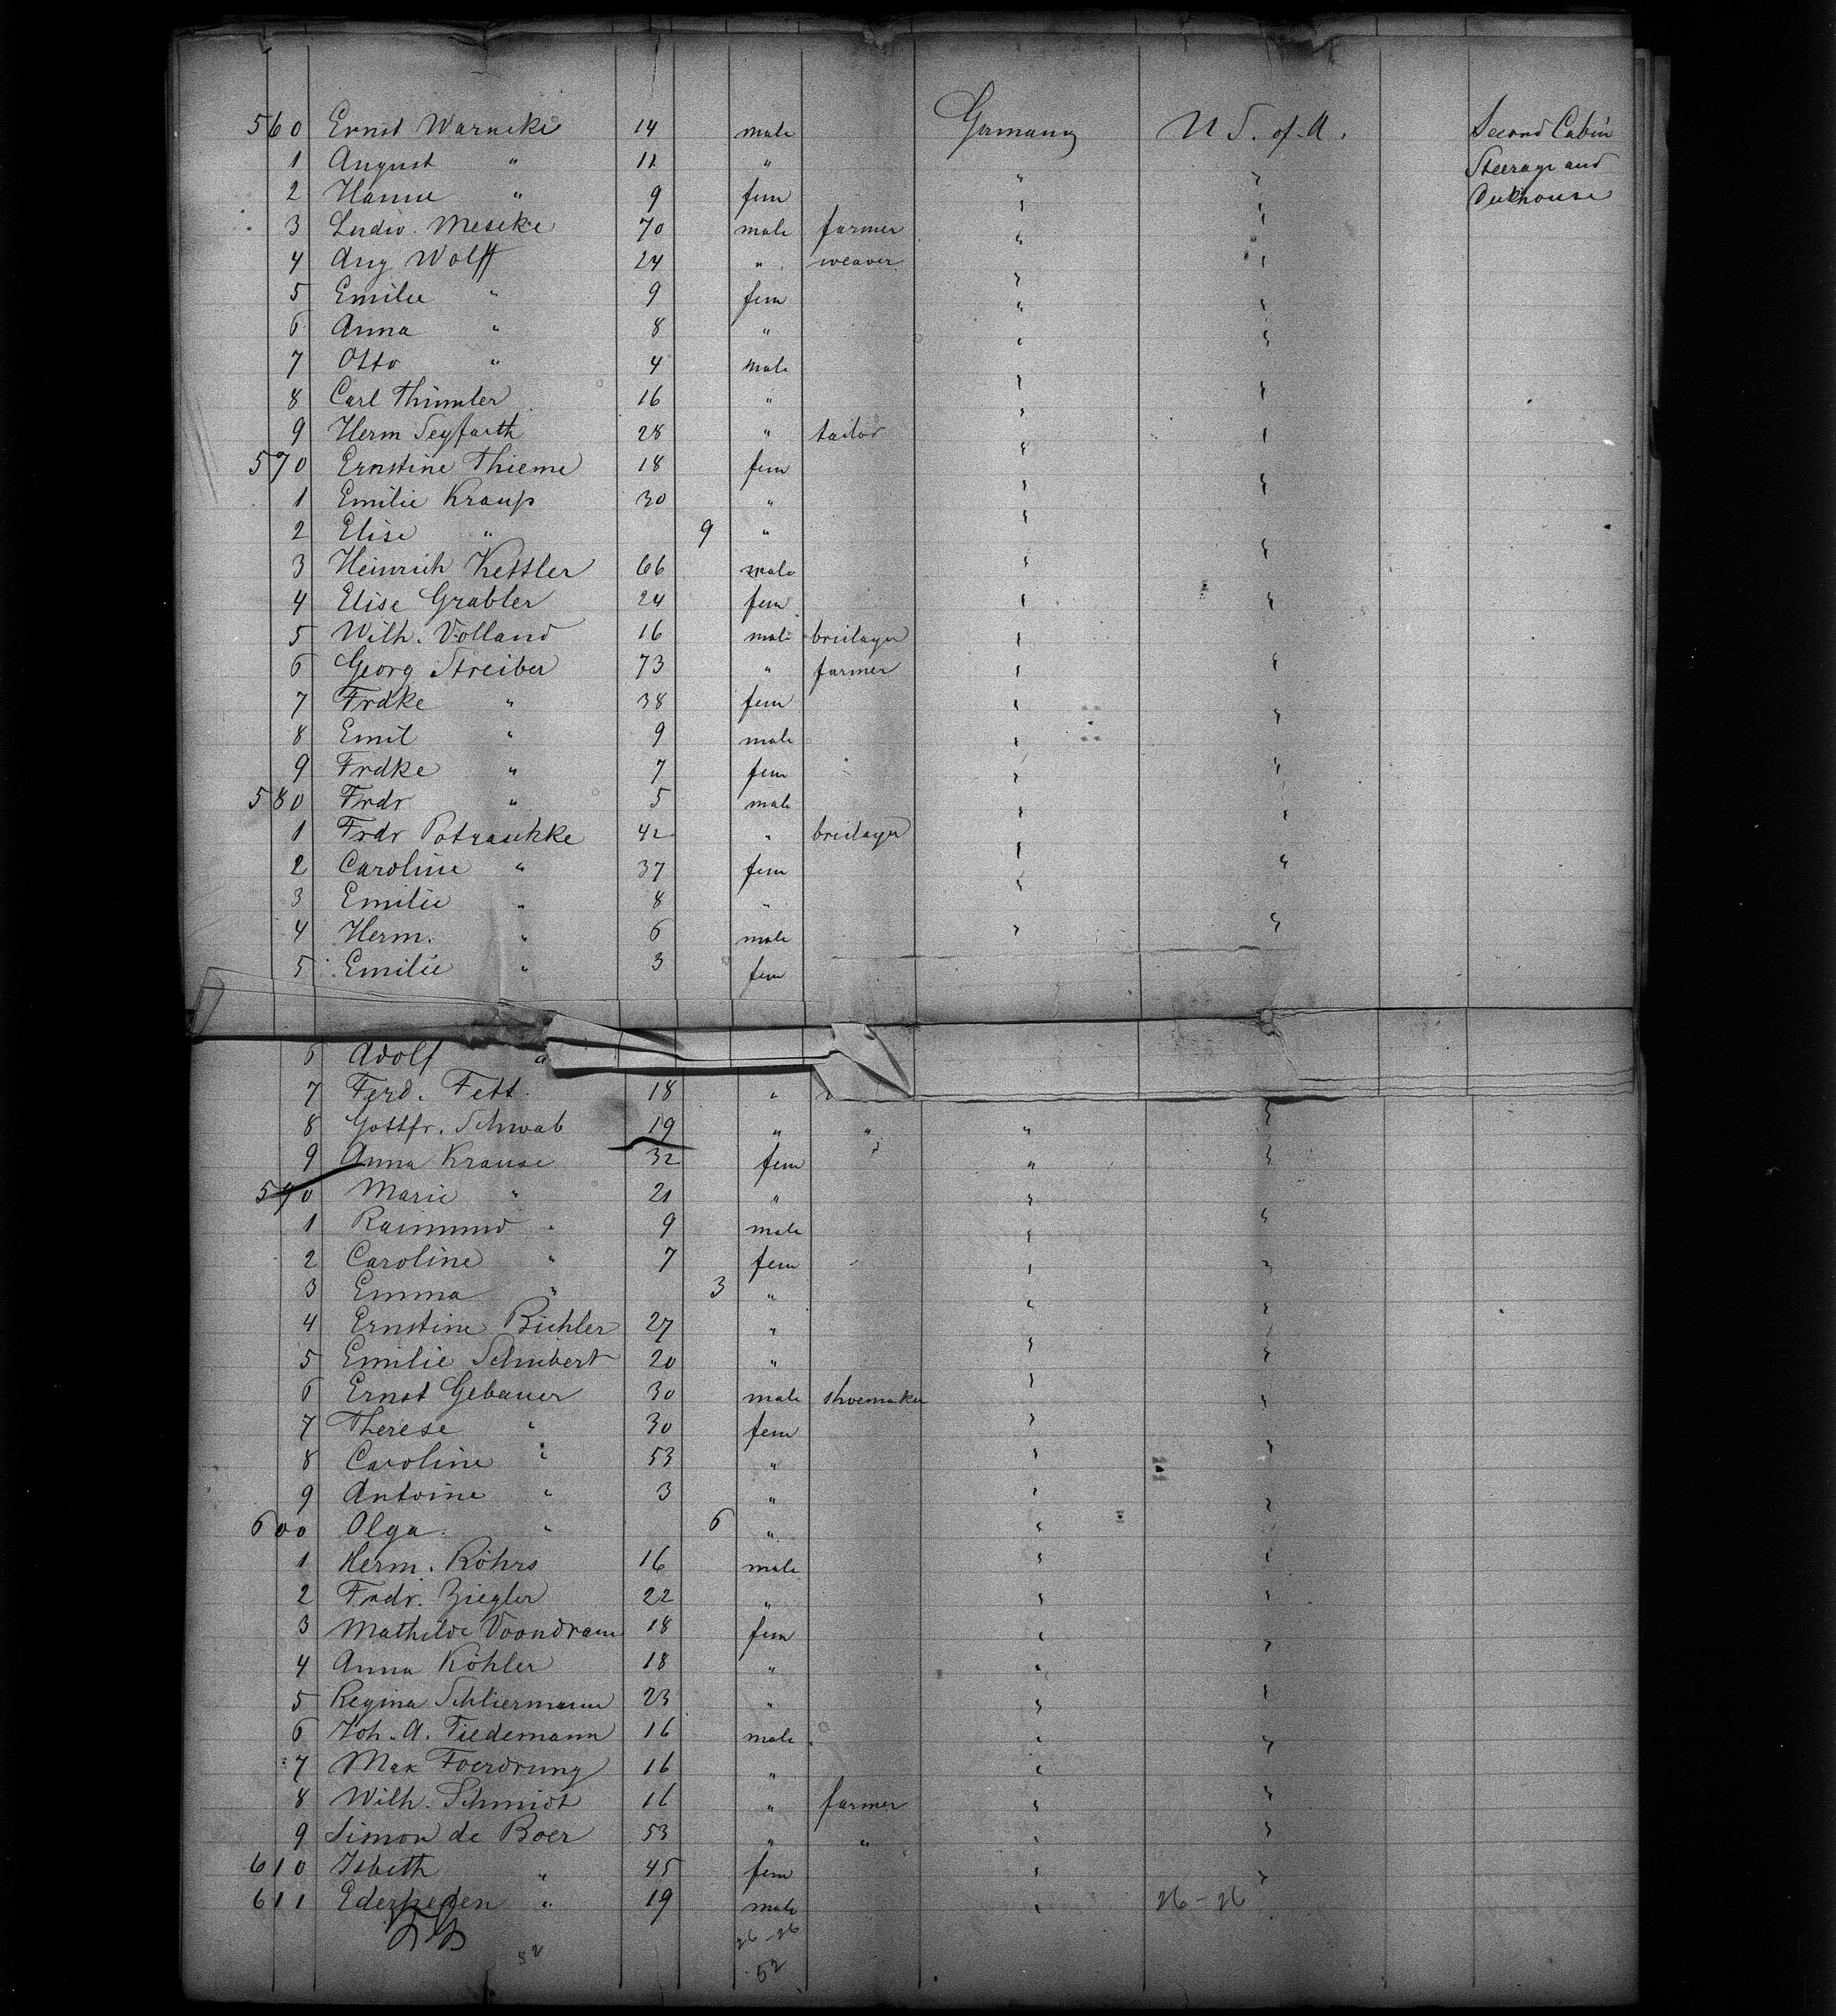 560 Ernst Warneke 14 male Germany U S. of A. Second Cabin
1 August " 11 " " " Steerage and
2 Hanne " 9 fem " " Deckhouse
3 Ludw. Meseke 70 male farmer " "
4 Aug Wolff 24 " weaver " "
5 Emilie " 9 fem " "
6 Anna " 8 " " "
7 Otto " 4 male " "
8 Carl Thümler 16 " " "
9 Herm Seyfarth 28 " tailor " "
570 Ernstine Thieme 18 fem " "
1 Emilie Kraup 30 " " "
2 Elise " 9 " " "
3 Heinrich Kettler 66 male " "
4 Elise Grabler 24 fem " "
5 Wilh. Volland 16 male briclayer "
6 Georg Streiber 73 " farmer " "
7 Frdke " 38 fem " "
8 Emil " 9 male "
9 Frdke " 7 fem " "
580 Frdr " 5 male " "
1 Frdr Potraschke 42 " briclayer " "
2 Caroline " 37 fem " "
3 Emilie " 8 "
4 Herm. " 6 male " "
5 Emilie " 3 fem
6 Adolf "
7 Ferd. Fett 18 "
8 Gottfr. Schwab 19 " " " "
9 Anna Krause 32 fem " "
590 Marie " 21 " "
1 Raimund " 9 male " "
2 Caroline " 7 fem " "
3 Emma " 3 " " "
4 Ernstine Bichler 27 " " "
5 Emilie Schubert 20 " " "
6 Ernst Gebauer 30 male shoemaker " "
7 Therese " 30 fem "
8 Caroline " 53 " " "
9 Antoine " 3 " " "
600 Olga " 6 " "
1 Herm. Röhrs 16 male " "
2 Frdr. Ziegler 22 " " "
3 Mathilde 18 fem " "
4 Anna Köhler 18 " "
5 Regina Schliermann 23 " " "
6 Joh. A. Tiedemann 16 male " "
7 Max Foerdrung 16 " "
8 Wilh. Schmidt 16 " farmer " "
9 Simon de Boer 53 " " " "
610 Isbeth " 45 fem " "
611 " 19 male " 26-26
26-26
52
52